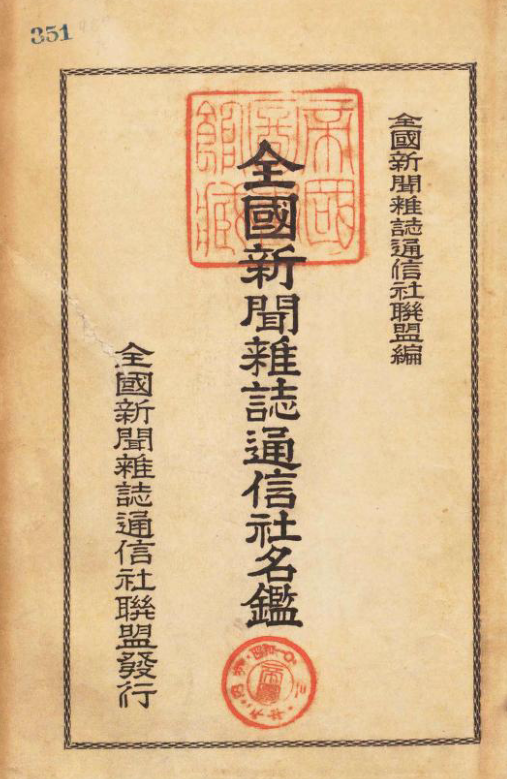 351
全國新聞雜誌通信社聯盟編
全國新聞雜誌通信社名鑑
全國新聞雜誌通信社聯盟發行
帝國圖書館藏